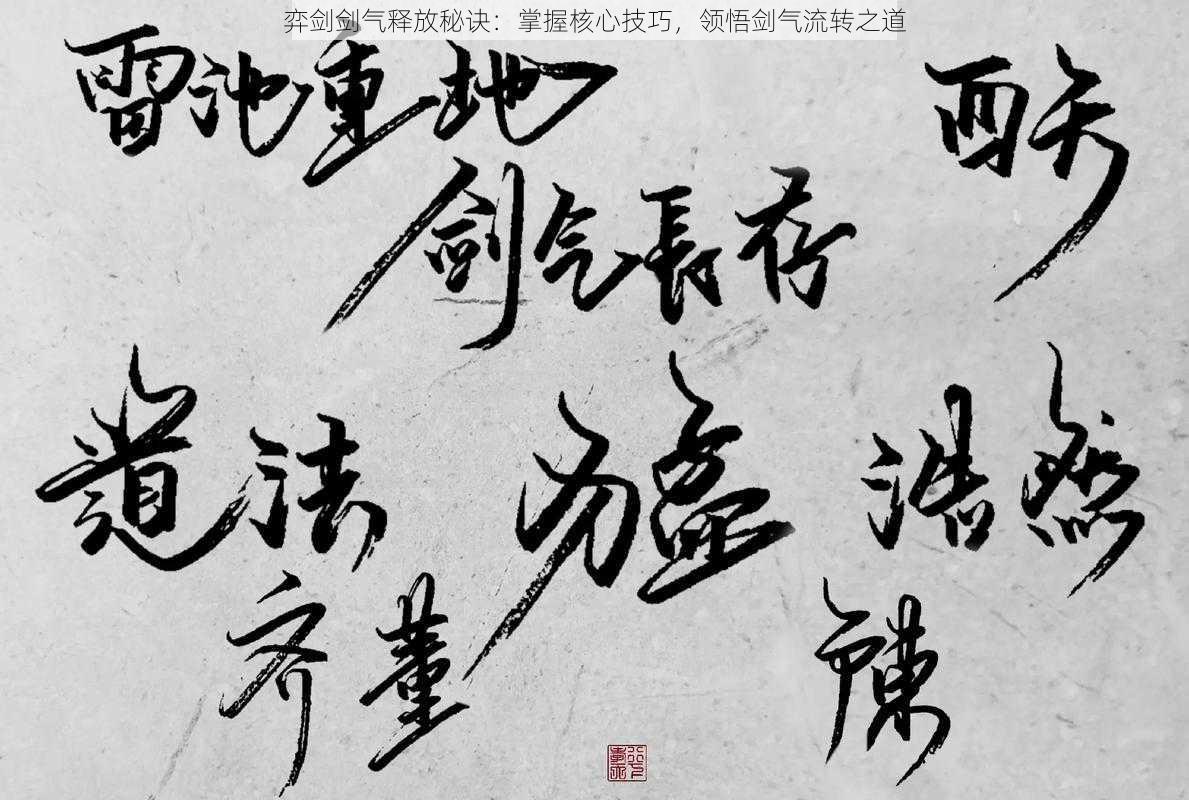 弈剑剑气释放秘诀：掌握核心技巧，领悟剑气流转之道
雷池重地
西天
剑气長存
道法
猛
浩然
齐
董
陳